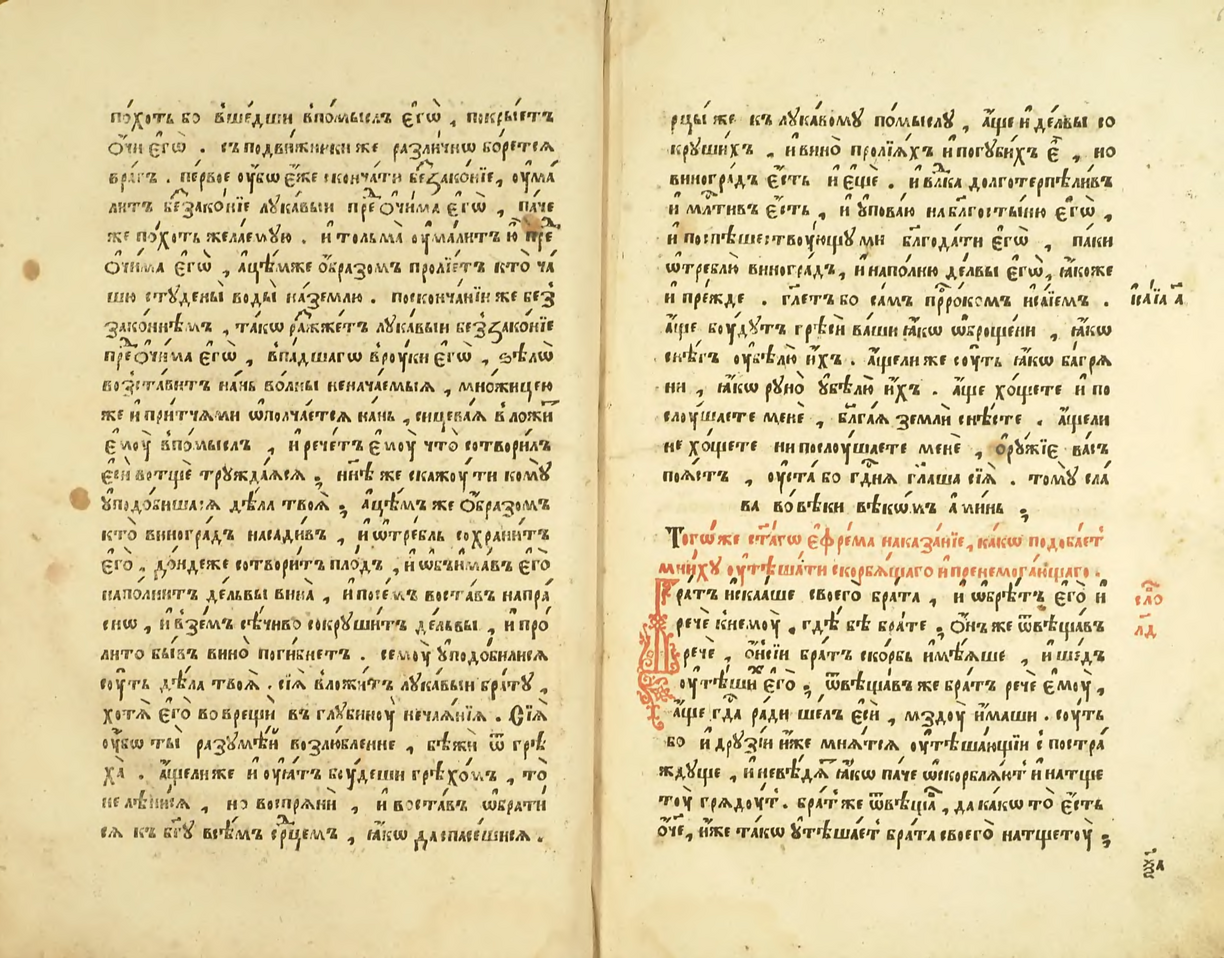 по́хоть бо вше́дши впо́мыслъ є҆гѡ̀ , покры́етъ
ѻ҆́чи є҆гѡ̀ . съ подви́жники же разли́чнѡ бо́рется
вра́гъ . пе́рвое ᲂу҆́бѡ є҆́же сконча́ти беꙁꙁако́нїе, ᲂу҆ма
ли́тъ беꙁꙁако́нїе лука́выи преⷣ ѻ҆чи́ма є҆гѡ̀ , па́че
же по́хоть жела́емую . и толь ма̀ ᲂу҆мали́тъ ю҆̀ преⷣ
ѻ҆чи́ма є҆гѡ̀ , а҆цѣ́мже ѻ҆́браꙁомъ пролїе́тъ кто̀ ча́
шю студены̀ воды̀ на́ꙁемлю . по сконча́нїи же беꙁ
ꙁако́ннѣмъ , та́кѡ ра́жжетъ лука́выи беꙁꙁако́нїе
преⷣ ѻ҆чи́ма є҆гѡ̀ , впа́дшагѡ вро́уки є҆гѡ̀ , ѕѣлѡ̀
воꙁста́витъ на́нь во́лны ненача́емыѧ , мно́жицею
же и҆ при́тчѧми ѡ҆полча́етсѧ на́нь , сицева́ѧ вложѝ
є҆мꙋ̀ впо́мыслъ , и҆ рече́тъ є҆мꙋ̀ что̀ сотвори́лъ
є҆сѝ вотщѐ тружда́ѧсѧ ; нн҃ѣ же скажꙋ́ ти комꙋ̀
ᲂу҆подо́бишасѧ дѣ́ла твоѧ̀ ; а҆цѣ́мъ же ѻ҆́браꙁомъ
кто̀ виногра́дъ насади́въ , и҆ ѡ҆тре́бль сохрани́тъ
є҆го̀ , до́ндеже сотвори́тъ пло́дъ , и҆ ѡ҆бъима́въ є҆го̀
напо́лнитъ де́львы вина̀ , и҆ по се́мъ воста́въ напра́
снѡ , и҆ вꙁе́мъ сѣ́чиво сокруши́тъ де́львы , и҆ про
ли́то бы́въ вино̀ поги́бнетъ . семꙋ̀ ᲂу҆подо́билисѧ
сꙋ́ть дѣ́ла твоѧ̀ . сїѧ̀ вложи́тъ лука́выи бра́ту ,
хотѧ̀ є҆го̀ во врещѝ въ глубинꙋ̀ неча́ѧнїѧ . Сїѧ̀
ᲂу҆́бѡ ты̀ раꙁумѣ́и воꙁлю́бленне , бѣжѝ ѿ грѣ
ха̀ . а҆́щели же и҆ ᲂу҆ѧ́тъ бꙋ́деши грѣхо́мъ , то̀
не лѣни́сѧ , но воспрѧнѝ , и҆ воста́въ ѡ҆брати́
сѧ къ бг҃у всѣ́мъ срⷣцемъ , ꙗ҆́кѡ да спасе́шисѧ .
рцы́ же къ лука́вому по́мыслу , а҆́ще и҆ де́львы со
круши́хъ , и҆ вино̀ пролїѧ́хъ и҆ погуби́хъ є҆̀ , но
виногра́дъ є҆́сть и҆ є҆щѐ . и҆ влⷣка долготерпѣли́въ
и҆ млⷭ҇тивъ є҆́сть , и҆ ᲂу҆пова́ю на бл҃госты́ню є҆гѡ̀ ,
и҆ поспѣшествоꙋ́ющу ми бл҃года́ти є҆гѡ̀ , па́ки
ѡ҆треблю̀ виногра́дъ, и҆ напо́лню де́львы є҆гѡ̀, ꙗ҆́коже
и҆ пре́жде . гл҃етъ бо са́мъ прⷪ҇ро́комъ и҆са́їемъ .
и҆са́їа а҃
а҆́ще бꙋ́дутъ грѣсѝ ва́ши ꙗ҆́кѡ ѡ҆броще́ни , ꙗ҆́кѡ
снѣ́гъ ᲂу҆бѣлю̀ и҆́хъ . а҆́щели же сꙋ́ть ꙗ҆́кѡ багрѧ
ни , ꙗ҆́кѡ руно̀ ᲂу҆бѣлю̀ и҆́хъ . а҆́ще хо́щете и҆ по
слꙋ́шаете менѐ , бл҃га́ѧ ꙁемлѝ снѣ́сте . а҆́щели
не хо́щете ни послꙋ́шаете менѐ , ѻ҆рꙋ́жїе ва́съ
поѧ́стъ , ᲂу҆ста̀ бо гдⷭ҇нѧ гл҃аша сїѧ̀ . тому сла́
ва во вѣ́ки вѣкѡ́мъ а҆ми́нь ;
Тогѡ́же ст҃а́гѡ є҆фре́ма наказа́нїе, ка́кѡ подоба́етъ
мни́ху ᲂу҆тѣша́ти скорбѧ́щаго и҆ пренемога́ющаго .
Бра́тъ и҆ска́аше своего̀ бра́та , и҆ ѡ҆брѣ́тъ є҆го̀ и҆
сло́
л҃д
речѐ к нему̀ , гдѣ̀ бѣ̀ бра́те ; ѻ҆́нъ же ѿвѣща́въ
речѐ , ѻ҆нси́и бра́тъ ско́рбь и҆мѣ́ѧше , и҆ ше́дъ
ᲂу҆тѣши́хъ є҆го̀ ; ѿвѣща́въ же бра́тъ речѐ є҆мꙋ̀ ,
а҆́ще гдⷭ҇а ра́ди ше́лъ є҆сѝ , мздꙋ̀ и҆́маши . сꙋ́ть
бо и҆ дру́зїи и҆́же мнѧ́тсѧ ᲂу҆тѣша́ющїи с постра́
ждуще , и҆ невѣ́дѧⷮ ꙗ҆́кѡ па́че ѡ҆скорблѧ́ютъ и҆ натще
тꙋ̀ грѧдꙋ́тъ . бра́тъ же ѿвѣща̀ , да ка́кѡ то̀ є҆́сть
ѻ҆́ч҃е, и҆́же та́кѡ ᲂу҆тѣша́етъ бра́та своего̀ натщетꙋ̀ ;